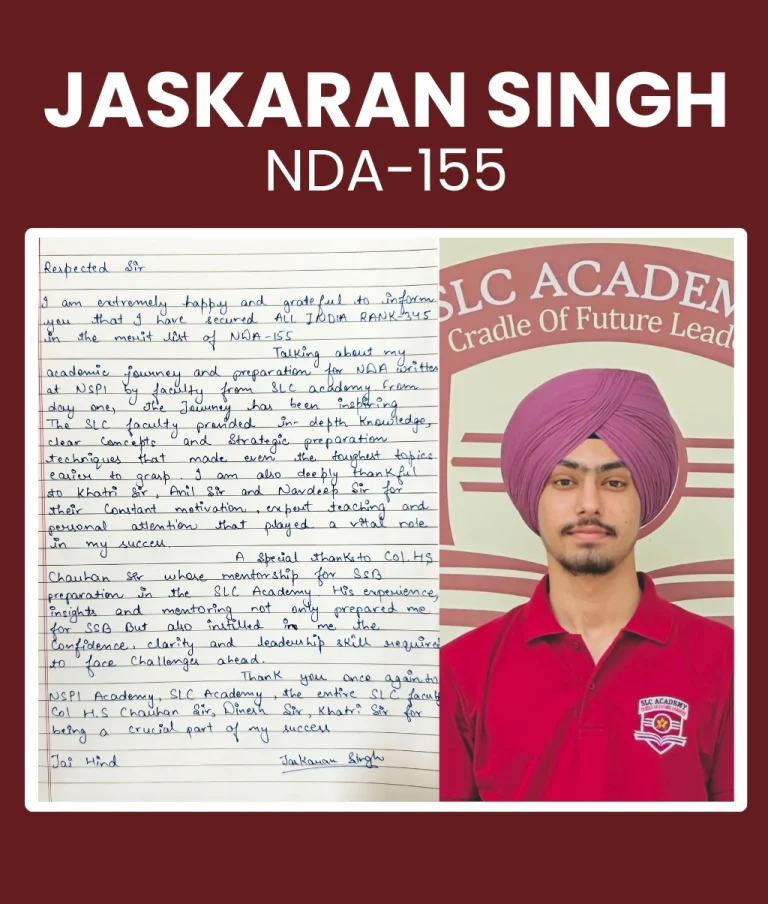 JASKARAN SINGH
NDA-155
Respected Sir
I am extremely happy and grateful to inform
you that I have secured ALL INDIA RANK-345
in the merit list of NDA-155
Talking about my
academic journey and preparation for NDA written
at NSPI by faculty from SLC academy from
day one, the Journey has been inspiring
The SLC faculty provided in-depth knowledge,
clear Concepts and Strategic preparation
techniques that made even the toughest topics
easier to grasp. I am also deeply thankful
to Khatri Sir, Anil Sir and Navdeep Sir for
their Constant motivation, expert teaching and
personal attention that played a vital role
in my success.
A Special thanks to Col. HS
Chauhan Sir whose mentorship for SSB
preparation in the SLC Academy. His experience,
insights and mentoring not only prepared me
for SSB But also instilled in me the
Confidence, clarity and leadership skill require
to face Challenges ahead.
Thank you once again to
NSPI Academy, SLC Academy, the entire SLC facult
Col H.S Chauhan Sir, Dinesh Sir, Khatri Sir for
being a crucial part of my success
Jai Hind
Jaskaran Singh
SLC ACADEM
Cradle Of Future Lead
SLC ACADEMY